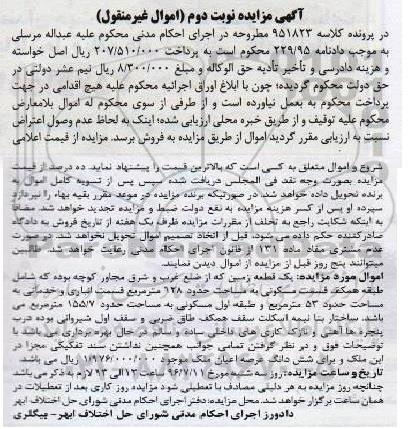 آگهی مزایده نوبت دوم (اموال غیرمنقول)
در پرونده کلاسه ۹۵۱۸۲۳ مطروحه در اجرای احکام مدنی محکوم علیه عبداله مرسلی
به موجب دادنامه ۲۲۹/۹۵ محکوم است به پرداخت ۲۰۷/۵۱۰/۰۰۰ ریال اصل خواسته
و هزینه دادرسی و تأخیر تأدیه حق الوکاله و مبلغ ۸/۳۰۰/۰۰۰ ریال نیم عشر دولتی در
حق دولت محکوم گردیده؛ چون با ابلاغ اوراق اجرائیه محکوم علیه هیچ اقدامی در جهت
پرداخت محکوم به بعمل نیاورده است و از طرفی از سوی محکوم له اموال بلامعارض
محکوم علیه توقیف و از طریق خبره محلی ارزیابی شده؛ اینک به لحاظ عدم وصول اعتراض
نسبت به ارزیابی مقرر گردید اموال از طریق مزایده به فروش برسد. مزایده از قیمت اعلامی
شروع و اموال متعلق به کسی است که بالاترین قیمت را پیشنهاد نماید. ده درصد از قیمت
مزایده بصورت وجه نقد فی المجلس دریافت شده سپس پس از تسویه کامل اموال به
برنده تحویل داده خواهد شد. در صورتیکه برنده مزایده در موعد مقرر بقیه بهاء را نپردازد
سپرده او پس از کسر هزینه مزایده به نفع دولت ضبط و مزایده تجدید خواهد شد مضافا
به اینکه شکایت راجع به تخلف از مقررات مزایده ظرف یک هفته از تاریخ فروش به دادگاه
صادرکننده حکم داده می‌شود. قبل از اتخاذ تصمیم اموال تحویل نخواهد شد. در صورت
عدم مشتری مفاد ماده ۱۳۱ از قانون اجرای احکام مدنی رعایت خواهد شد. طالبین
میتوانند پنج روز قبل از مزایده از اموال دیدن نمایند.
اموال مورد مزایده: یک قطعه زمین که از ضلع غرب و شرق مجاور کوچه بوده که شامل
طبقه همکف قسمت مسکونی به مساحت حدود ۱۲۸ مترمربع قسمت انباری و خدماتی به
مساحت حدود ۵۳ مترمربع و طبقه اول مسکونی به مساحت حدود ۱۵۵/۷ مترمربع می
باشد. ساختار بنا نیمه اسکلت سقف همکف طاق ضربی و سقف اول شیروانی بوده درب
پنجره ها آهنی و نازک کاری های داخلی ساده و سالم در حال بهره برداری می باشد با
توضیحات فوق و در نظر گرفتن تمامی جوانب همچنین نداشتن سند تفکیکی مجزا در
این ملک و برای شش دانگ عرصه اعیان ملک موجود ۱/۱۷۶/۰۰۰/۰۰۰ ریال می باشد.
تاریخ و ساعت مزایده: روز سه شنبه مورخ ۹۶/۷/۱۱ ساعت ۱۲ الی ۱۳ لازم به ذکر می باشد
چنانچه روز مزایده به هر دلیلی مصادف با تعطیلی شود مزایده روز کاری بعد از تعطیلات در
همان ساعت برگزار خواهد شد. محل مزایده: دفتر اجرای احکام مدنی شورای حل اختلاف ابهر
دادورز اجرای احکام مدنی شورای حل اختلاف ابهر- بیگلری